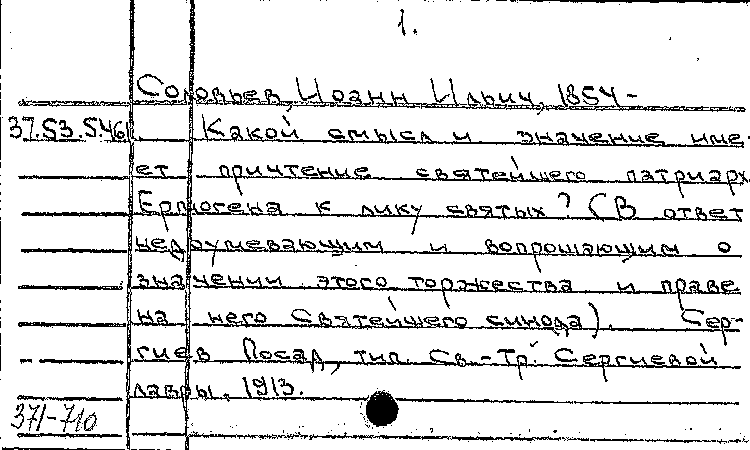 1.
Соловьев, Иоанн Ильич, 1854-
37.53.546 Какой смысл и значение име-
ет причтение святейшего патриарх
Ермогена к лику святых? (В ответ
недоумевающим и вопрошающим о
значении этого торжества и праве
на него Святейшего синода). Сер-
гиев Посад, тип. Св.-Тр. Сергиевой
лавры, 1913.
371-710